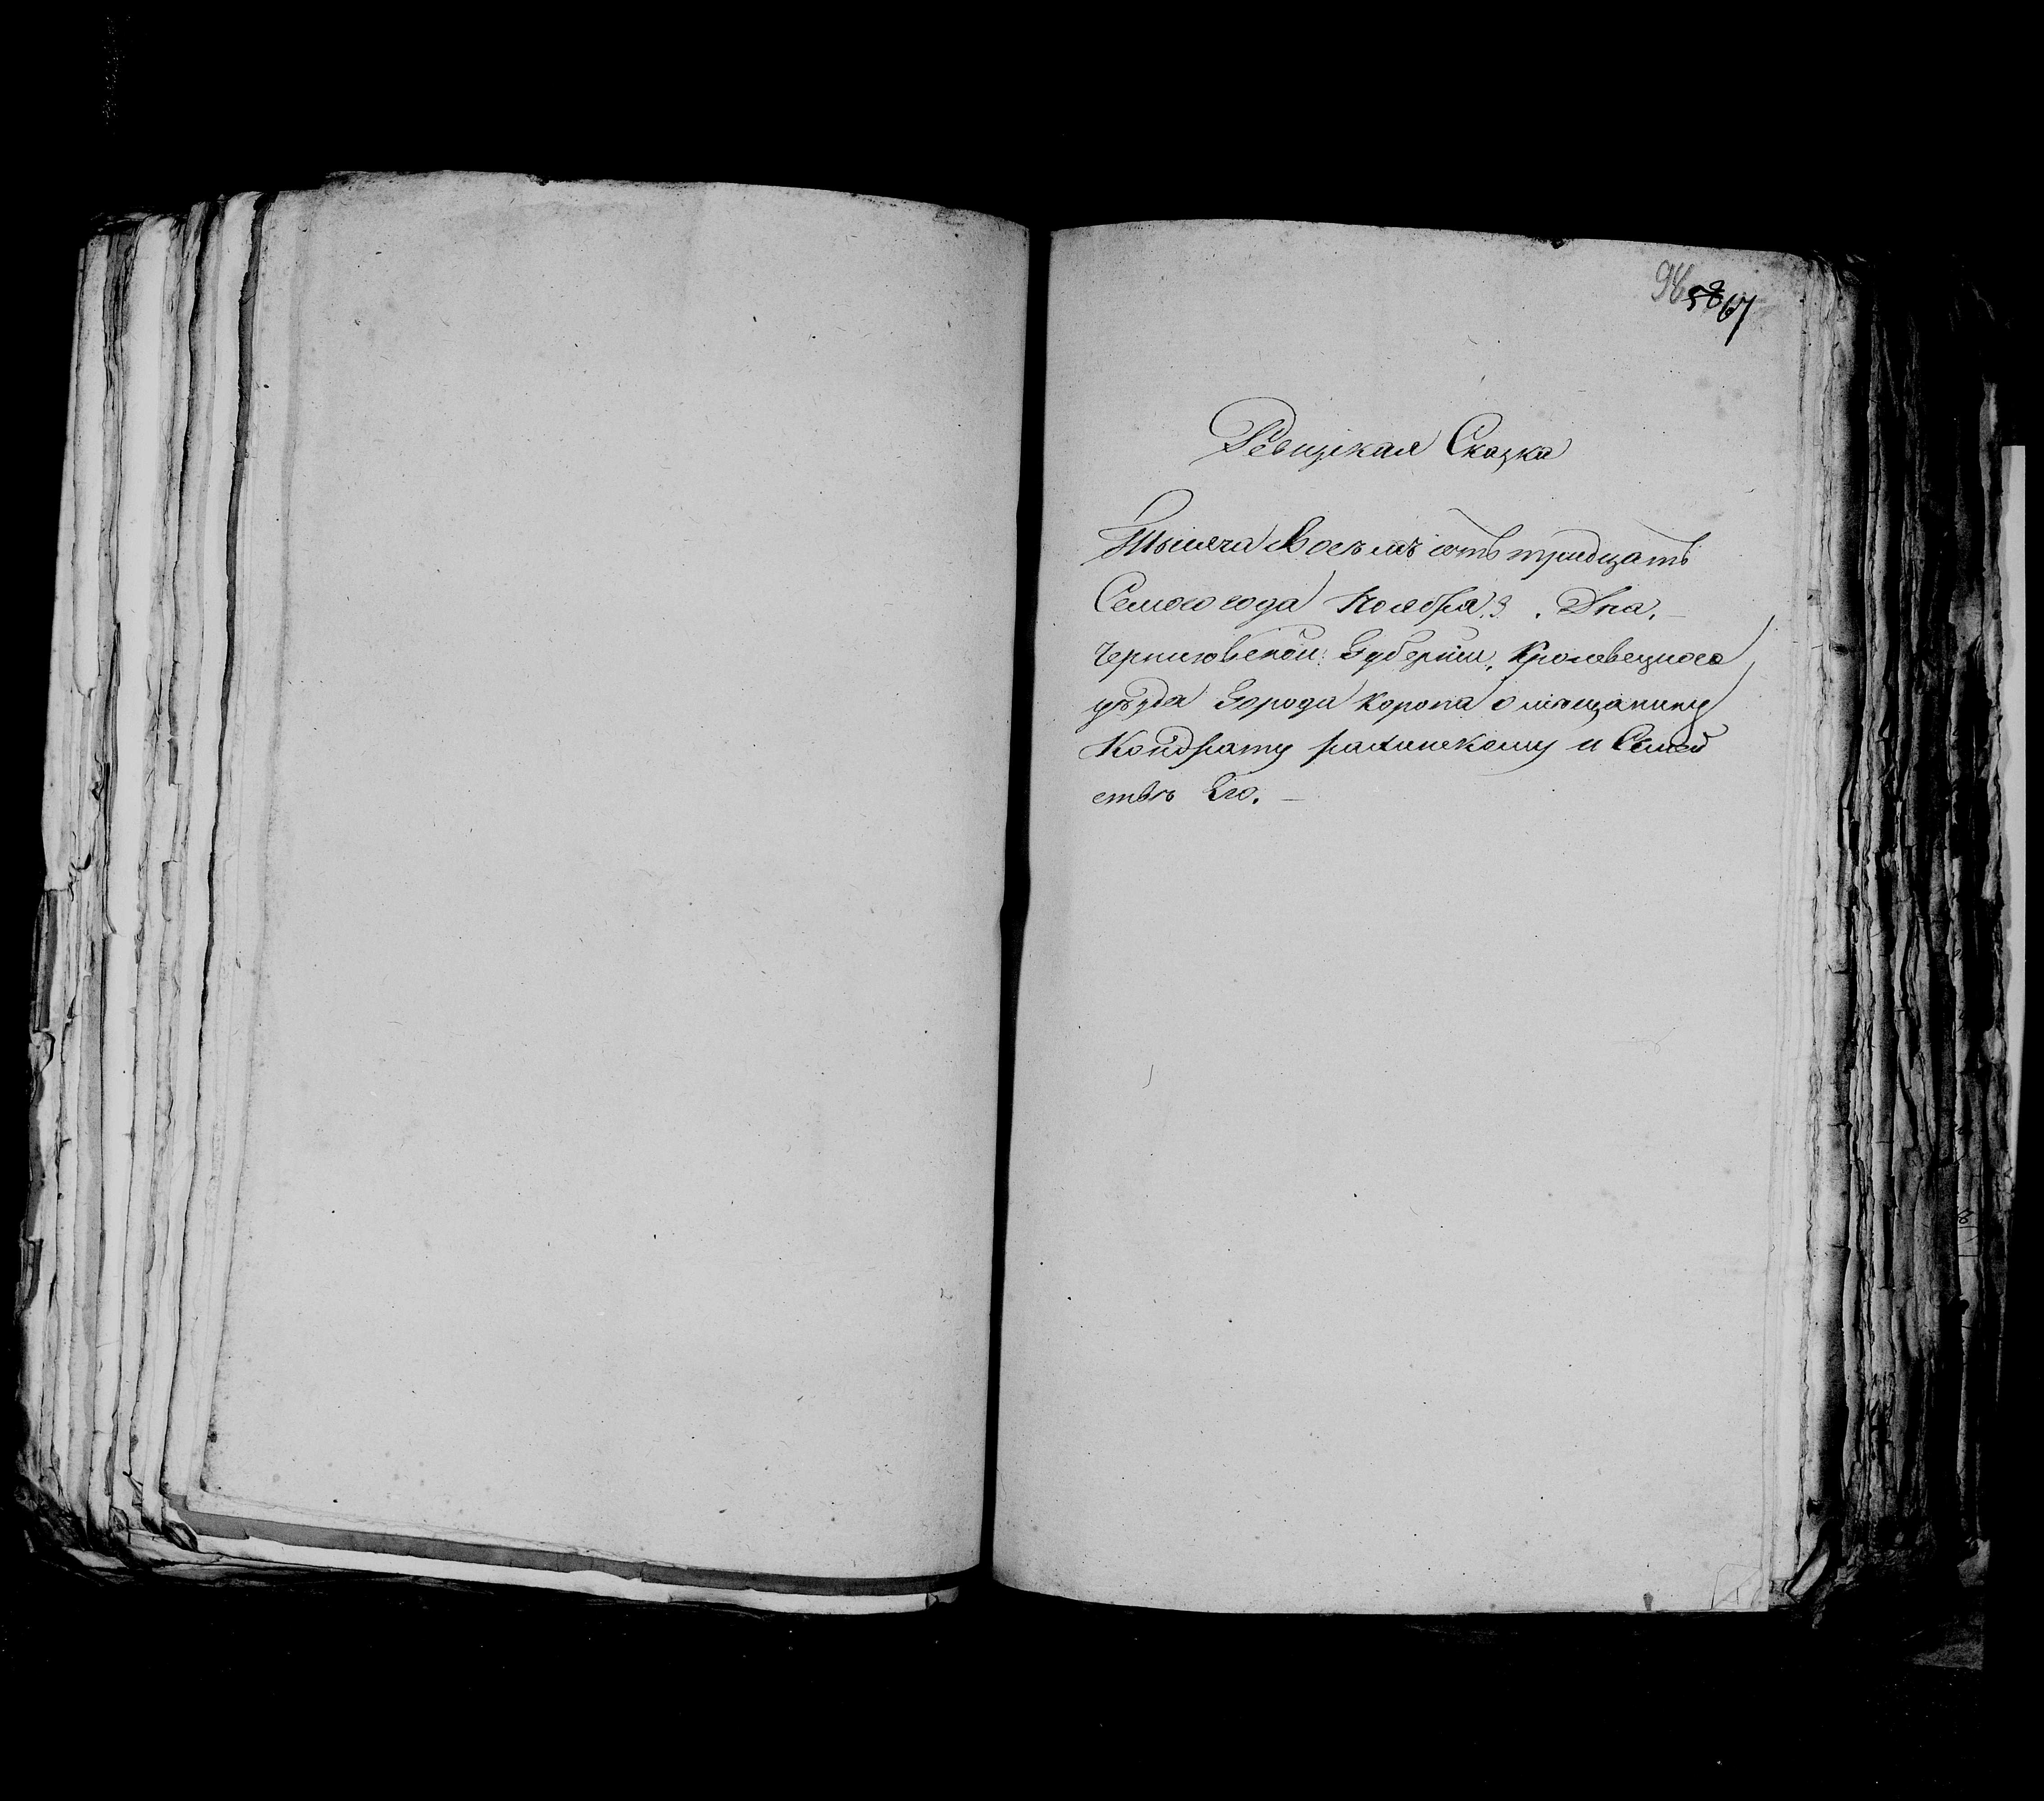 98 58 67
Ревизкая Сказка
Тысяча Восемъ сотъ тридцать
Семого года Ноября 3. Дня.
Черниговской Губернии, Кролевецкого
уѣзда Города Коропа о мѣщанину
Кондрату и Семей
ствѣ Его.